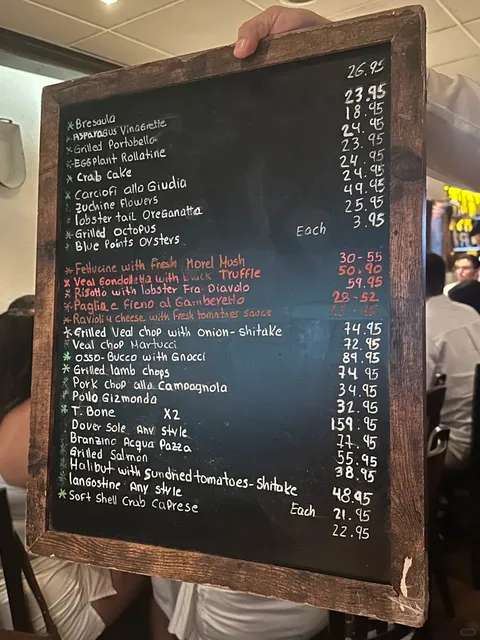 * Bresaula 26.95
* Asparagus Vinagrette 23.95
* Grilled Portobello 18.95
* Eggplant Rollatine 24.95
* Crab Cake 23.95
* Carciofi allo Giudia 24.95
* Zuchine Flowers 24.95
* lobster tail Oreganatta 49.95
* Grilled Octopus 25.95
* Blue Points Oysters Each 3.95
* Fettucine with Fresh Morel Mush 30-55
* Veal Gondolletta with black Truffle 50.90
* Risotto with lobster Fra Diavolo 59.95
* Paglia e Fieno al Gamberetto 28-52
* Ravioli cheese with Fresh tomatoes sauce
* Grilled Veal chop with onion-shitake 74.95
* Veal chop Martucci 72.95
* Osso-Bucco with Gnocci 89.95
* Grilled lamb chops 74.95
* Pork chop alla Campagnola 34.95
* Pollo Gizmonda 32.95
* T. Bone X2 159.95
* Dover sole Any style 77.95
* Branzino Acqua Pazza 55.95
* Grilled Salmon 38.95
* Halibut with sundried tomatoes-Shitake 48.95
* langostine Any style Each 21.95
* Soft Shell Crab Caprese 22.95